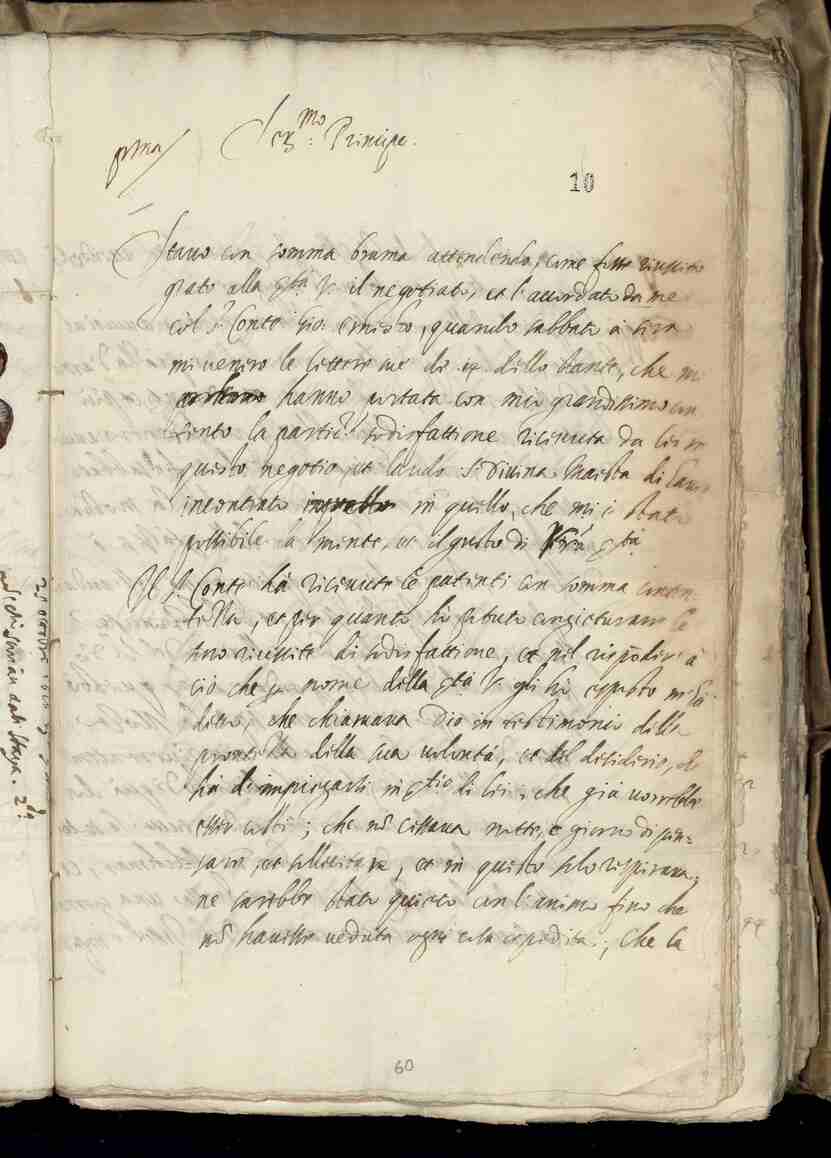 pma
Ser.mo Principe.
10
Stavo con somma brama attendendo, come fosse riuscito
grato alla Stà V. il negotiato, et l'accordato da me
col S. Conte Gio: Ernesto, quando sabbato à sera
mi venero le lettere sue di 14. dello stante, che m
hanno portata con mio grandissimo con
tento la partic.r sodisfattione ricevuta da lei in
questo negotio, et laudo S. Divina Maestà di haver
incontrato in quello, che mi è stato
possibile la mente, et il gusto di Vrã Stà
Il S. Conte hà ricevute le patenti con somma conten
tezza, et per quanto hò potuto congieturare le
sono riuscite di sodisfattione, et nel rispõder à
ciò che p nome della Stà V. gli hò esposto mi hà
detto, che chiamava Dio in testimonio della
prontezza della sua volontà, et del desiderio, ch
hà d'impiegarsi in stio di lei, che già vorrebbe
esser colti; che nõ cessava notte, e giorno di pen=
sare, et sollecitare, et in questo solo respirava;
ne sarebbe stato quieto con l'animo fino che
nõ havesse veduta ogni cosa espedita; Che la
60